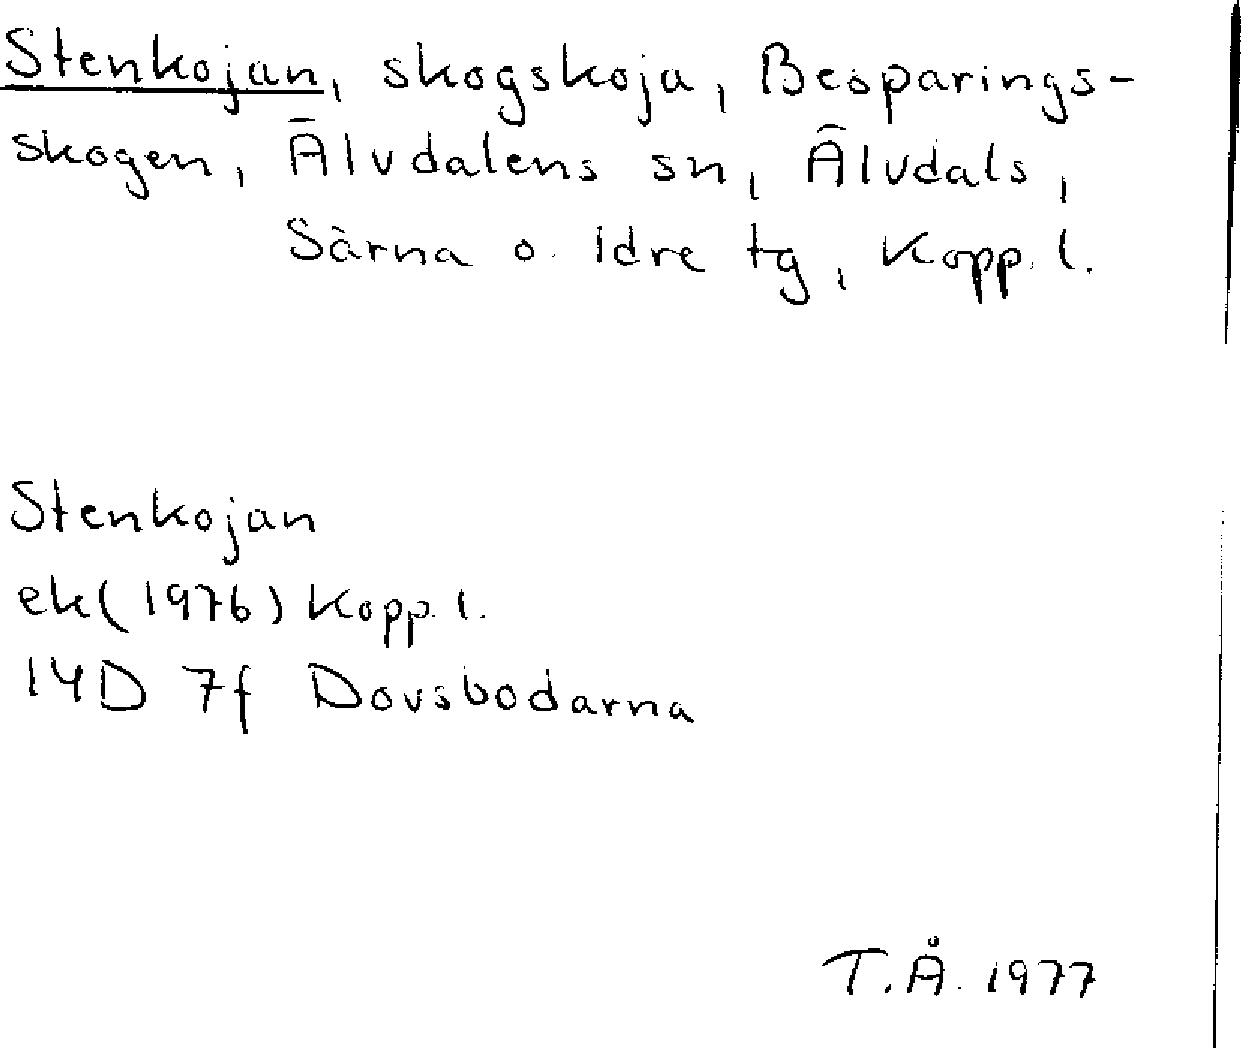 Stenkojan, skogskoja, Besparings-
skogen, Älvdalens sn, Älvdals,
Särna o. Idre tg, Kopp. l.
Stenkojan
ek (1976) Kopp. l.
14D 7f Dovsbodarna
T.Å. 1977